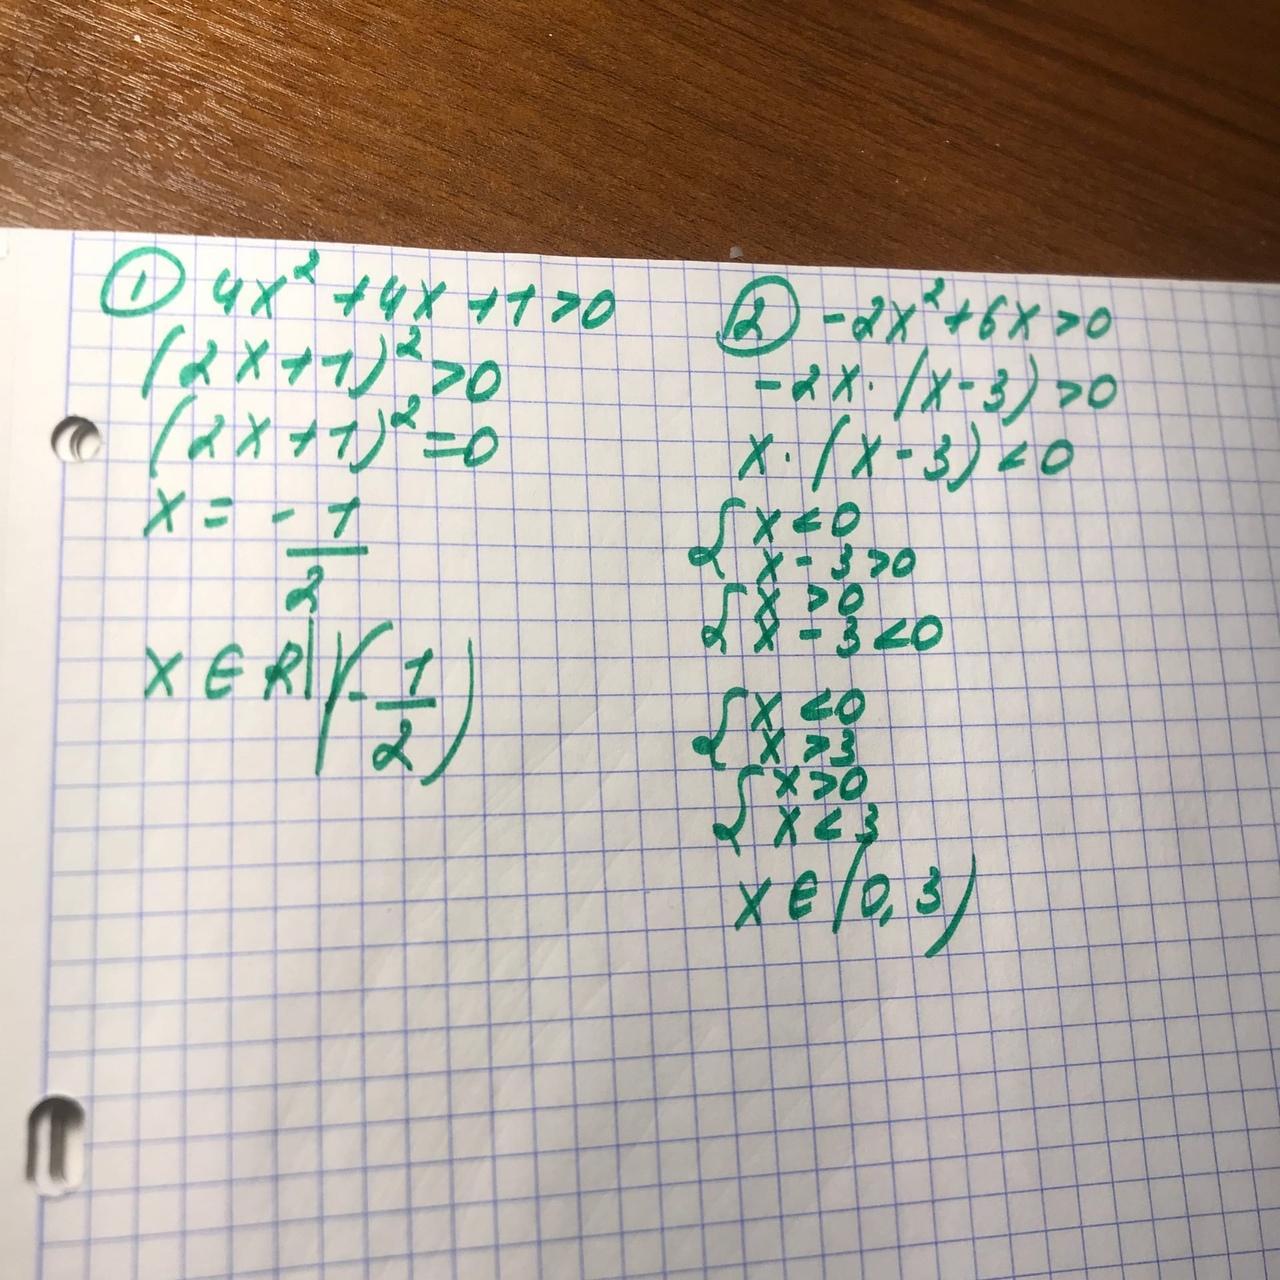 ① 4x² + 4x + 1 > 0
(2x + 1)² > 0
(2x + 1)² = 0
x = - 1/2
x ∈ R | (- 1/2)
② -2x² + 6x > 0
-2x · (x - 3) > 0
x · (x - 3) < 0
{ x < 0
x - 3 > 0
{ x > 0
x - 3 < 0
{ x < 0
x > 3
{ x > 0
x < 3
x ∈ (0, 3)